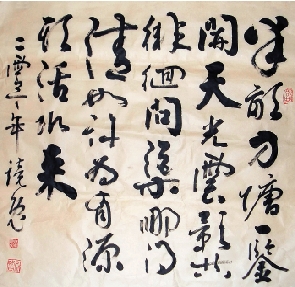 半畝方塘一鑒
開天光雲影共
徘徊問渠哪得
清如許為有源
頭活水來